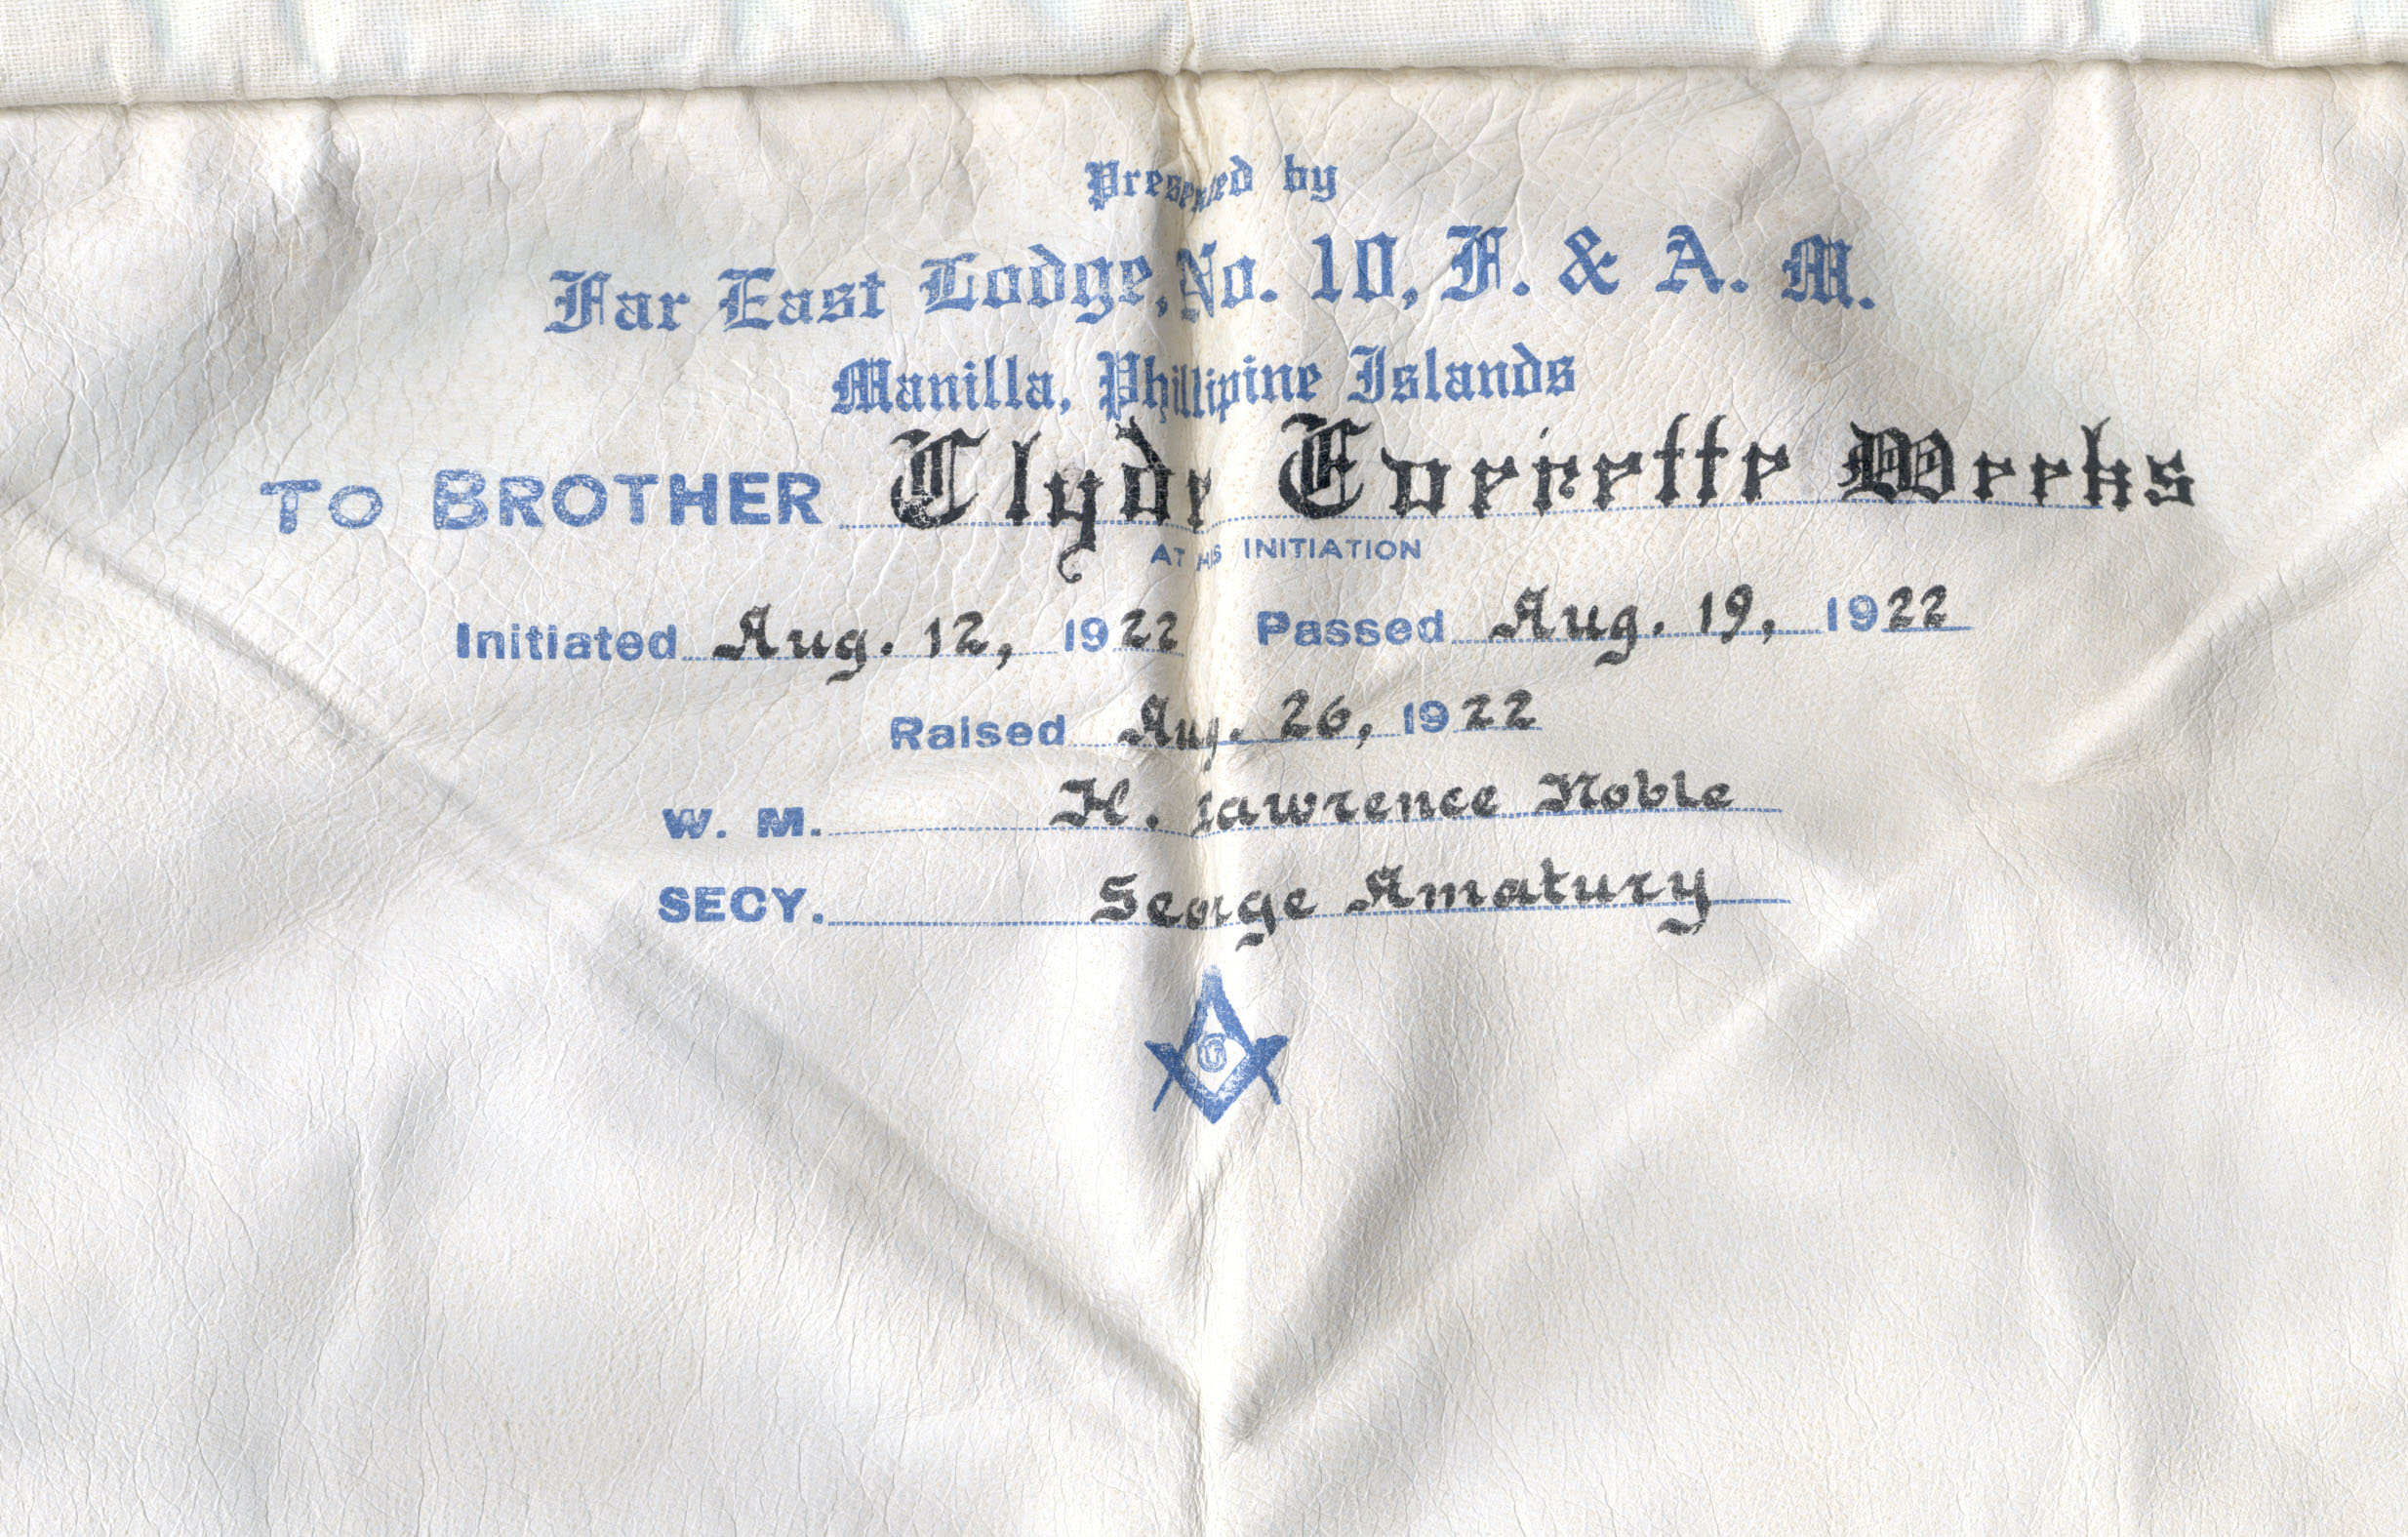 Presented by
Far East Lodge, No. 10, F. & A. M.
Manilla, Phillipine Islands
TO BROTHER Clyde Everette Weeks
AT HIS INITIATION
Initiated Aug. 12, 1922 Passed Aug. 19, 1922
Raised Aug. 26, 1922
W. M. H. Lawrence Noble
SECY. George Amatury
G